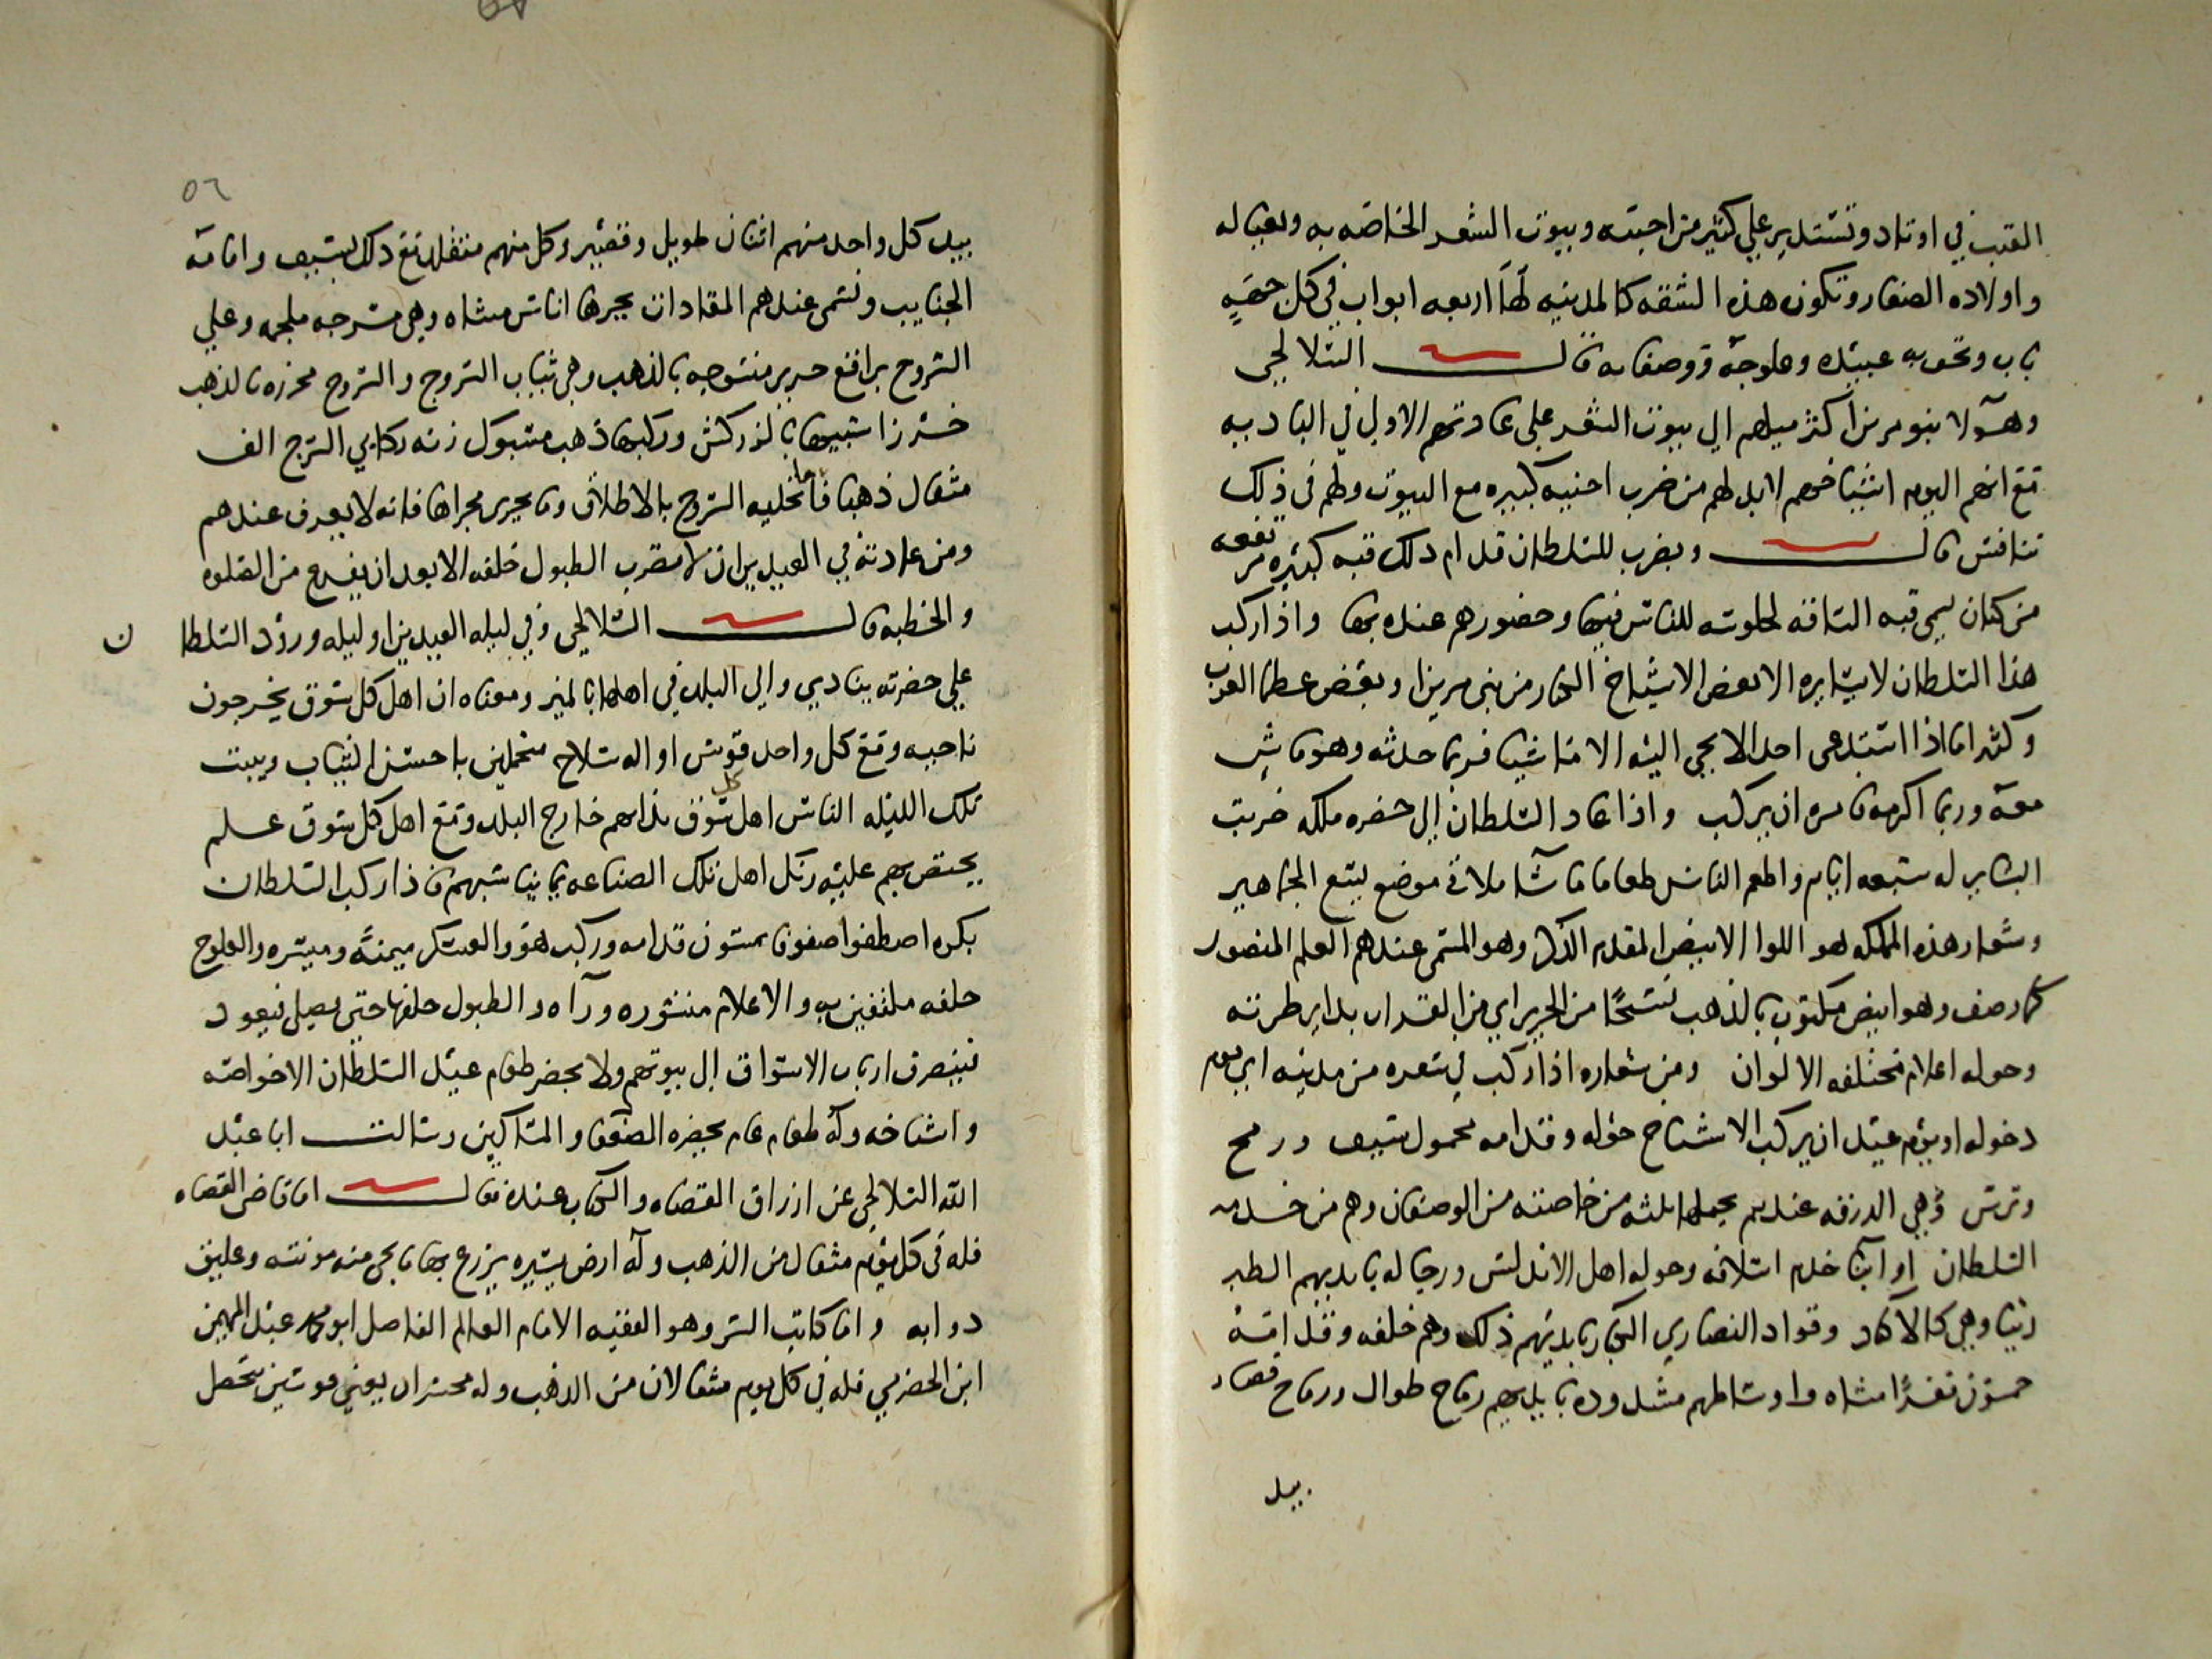 القنب في اوتاد وتستدير علي كثير من اخبيته وبيوت الشعر الخاصه به وبعياله
واولاده الصغار وتكون هذه الشقه كالمدينه لها اربعه ابواب في كل جهه
باب وتحف به عبيده وعلوجه ووصفانه قال السلالحي
وهولا بنو مرين اكثر ميلهم الي بيوت الشعر علي عادتهم الاولي في الباديه
مع انهم اليوم اشياخهم لابد لهم من ضرب اخبيه كبيره مع البيوت ولهم في ذلك
تنافس قال ويضرب للسلطان قدام ذلك قبه كبيره مرتفعه
من كتان تسمي قبه الساقه لجلوسه للناس فيها وحضورهم عنده بها واذا ركب
هذا السلطان لا يسايره الا بعض الاشياخ الكبار من بني مرين او بعض عظما العرب
وكثيرا ما اذا استدعي احدا لا يجي اليه الا ماشيا فربما حدثه وهو ماش
معه وربما اكرمه بامره ان يركب واذا عاد السلطان الي حضره ملكه ضربت
البشاير له سبعه ايام واطعم الناس طعاما شاملا في موضع يسع الجماهير
وشعار هذه المملكه هو اللوا الابيض المقدم الذكر وهو المسمي عندهم العلم المنصور
كما وصف وهو ابيض مكتوب بالذهب نسجا من الحرير اي من القران بداير طرته
وحوله اعلام مختلفه الالوان ومن شعاره اذا ركب في سفره من مدينه اي يوم
دخوله او يوم عيد ان يركب الاشياخ حوله وقدامه محمول سيف ورمح
وترس وهي الدرقه عندهم يحملها ثلثه من خاصته من الوصفان وهم من خدمه
السلطان او ابنا خدم اسلافه وحوله اهل الاندلس ورجاله بايديهم الطبر
زينا وهي كالاكاد وقواد النصاري الكبار بايديهم ذلك وهم خلفه وقدامه
خمسون نفرا مشاه واوساطهم مشدوده بايديهم رماح طوال ورماح قصار
بيد
٥٦
بيد كل واحد منهم اثنان طويل وقصير وكل منهم متقلد مع ذلك بسيف وامامه
الجنايب وتسمي عندهم المقادات يجرها اناس مشاه وهي مسرجه ملجمه وعلي
السروج براقع حرير منسوجه بالذهب وهي ثياب السروج والسروج مخرزه بالذهب
خرزا شبيها بالزركش وركبها ذهب مسبوك زنه ركابي السرج الف
مثقال ذهبا فاما تحليه السروج بالاطلاق وما يجري مجراها فانه لا يعرف عندهم
ومن عادته في العيدين ان لا تضرب الطبول خلفه الا بعد ان يفرغ من الصلوه
والخطبه قال السلالحي وفي ليله العيدين او ليله ورود السلطان
علي حضرته ينادي والي البلد في اهلها بالميز ومعناه ان اهل كل سوق يخرجون
ناحيه ومع كل واحد قوس او اله سلاح متجملين باحسن الثياب ويبيت
تلك الليله الناس اهل كل سوق بذاتهم خارج البلد ومع اهل كل سوق علم
يختص بهم عليه رنك اهل تلك الصناعه بما يناسبهم فاذا ركب السلطان
بكره اصطفوا صفوفا يمشون قدامه وركب هو والعسكر ميمنه وميسره والعلوج
خلفه ملتفين به والاعلام منشوره وراه والطبول خلفها حتي يصلي فيعود
فينصرف ارباب الاسواق الي بيوتهم ولا يحضر طعام عيد السلطان الا خواصه
واشياخه وله طعام عام يحضره الضعفا والمساكين وسالت ابا عبد
الله السلالحي عن ارزاق القضاه والكتاب عنده فقال اما قاضي القضاه
فله في كل يوم مثقال من الذهب وله ارض يسيره يزرع بها ما يجي منه مونته وعليق
دوابه واما كاتب السر وهو الفقيه الامام العالم الفاضل ابو محمد عبد المهيمن
ابن الحضرمي فله في كل يوم مثقالان من الذهب وله محشران يعني قريتين يتحصل